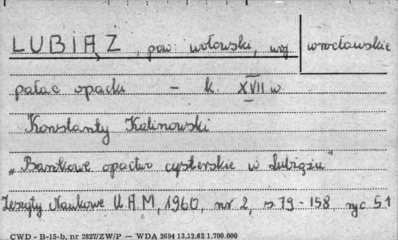 LUBIĄŻ, pow. wołowski, woj. wrocławskie
pałac opacki – k. XVII w
Konstanty Kalinowski
„Barokowe opactwo cysterskie w Lubiążu"
Zeszyty Naukowe U.A.M, 1960, nr 2, s 79-158 ryc 51
CWD - B-15-b, nr 2827/ZW/P — WDA 2694 13.12.62 1.700.000